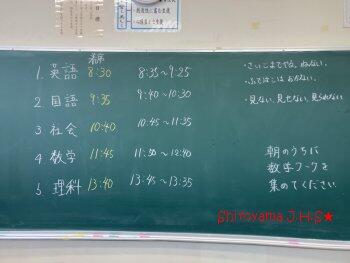 着席
1. 英語 8:30 8:35~9:25
2 国語 9:35 9:40~10:30
3 社会 10:40 10:45~11:35
4 数学 11:45 11:50~12:40
5. 理科 13:40 13:45~13:35
・さいごまでやる。ねない。
・ふでばこは おかない。
・見ない、見せない、見られない
朝のうちに
数学ワークを
集めてください
Shiroyama J.H.S★